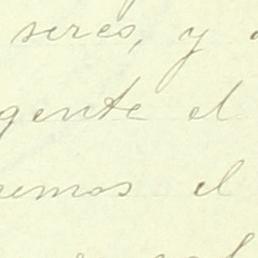 seres, y
gente el
remos el